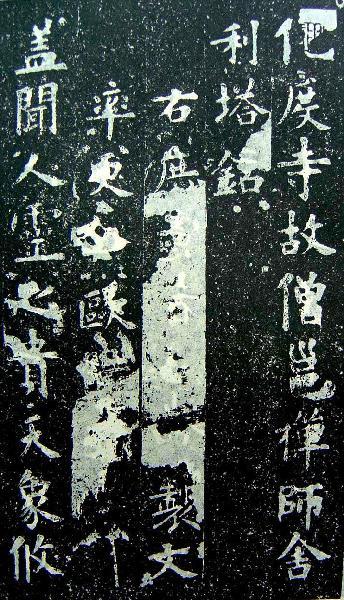 化度寺故僧邕禪師舍
利塔銘
右庶製文
率更令歐
蓋聞人靈之貴天象攸